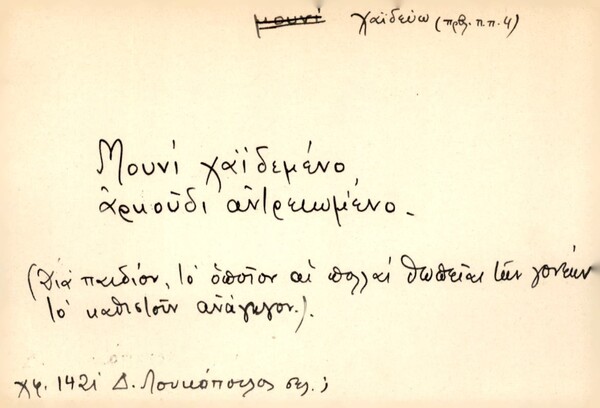 μουνί χαϊδεύω (πρβ. π.π. 4)
Μουνί χαϊδεμένο,
ἀρκοῦδι ἀντρεκωμένο.
(Διά παιδίον, τό ὁποῖον αἱ πολλαί θωπεῖαι τῶν γονέων
τό καθιστοῦν ἀνάγωγον.).
χφ. 1421 Δ. Λουκόπουλος σελ. ;